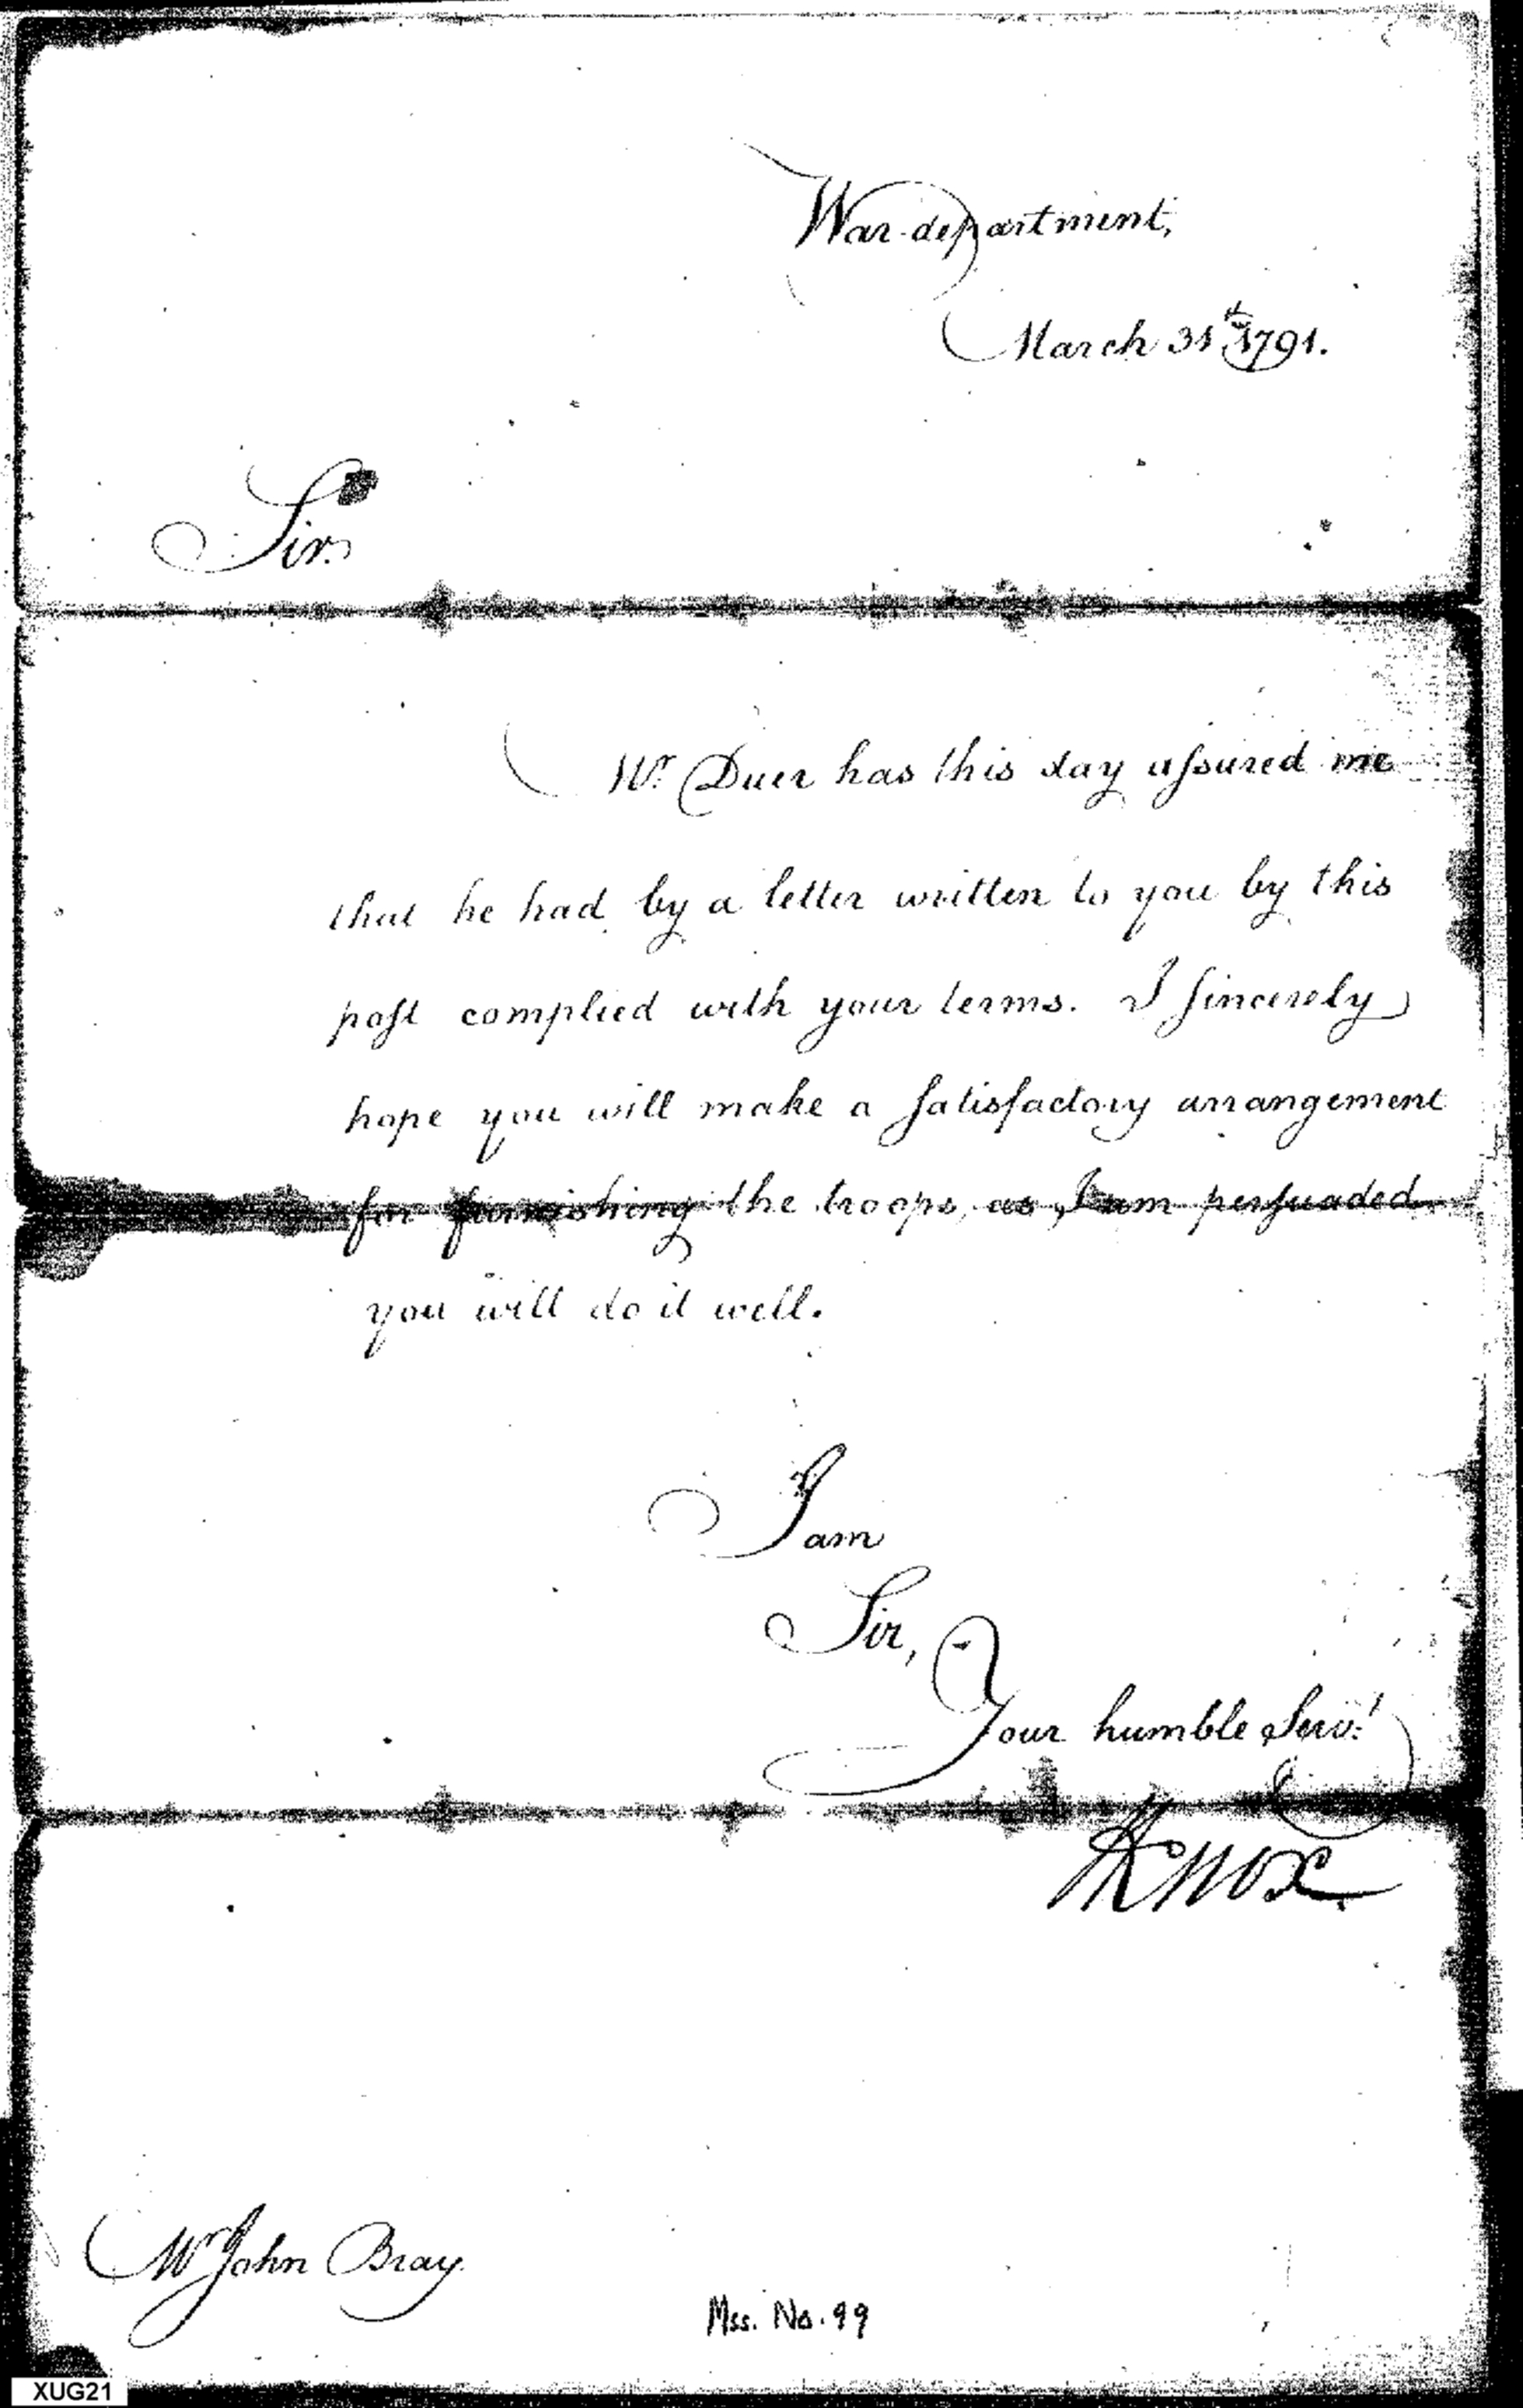 War department,
March 31st 1791.
Sir.
Mr. Duer has this day assured me
that he had by a letter written to you by this
post complied with your terms. I sincerely
hope you will make a satisfactory arrangement
for furnishing the troops, as I am persuaded
you will do it well.
I am
Sir,
Your humble Servt.
HKnox
Mr John Bray.
Mss. No. 99
XUG21